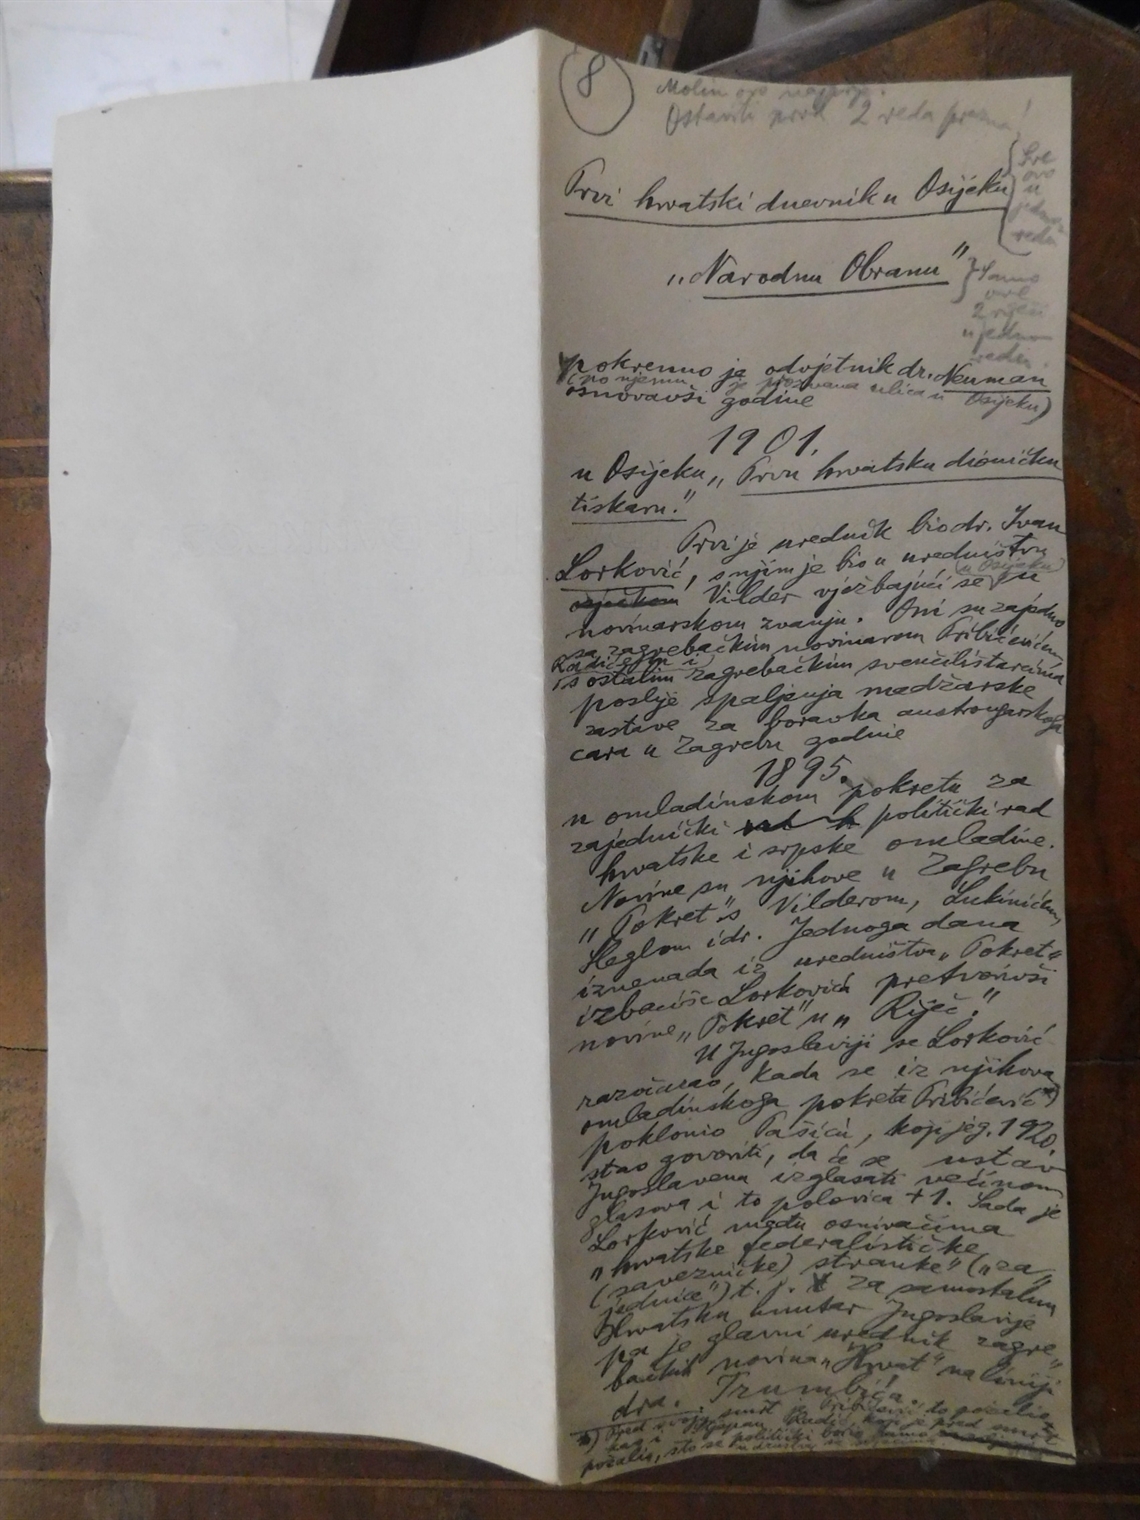 8
Molim ovo najprije.
Ostaviti prva 2 reda prazna!
Prvi hrvatski dnevnik u Osijeku
{ Sve
ovo
u
jednom
redu
„Narodnu Obranu"
} Samo
ove
2 riječi
u jednom
redu
pokrenuo je odvjetnik dr. Neuman
(po njemu je prozvana ulica u Osijeku)
osnovavši godine
1901.
u Osijeku „Prvu hrvatsku dioničku
tiskaru."
Prvi je urednik bio dr. Ivan
Lorković, s njim je bio u uredništvu
(u Osijeku)
osječkom Vilder vježbajući se u
novinarskom zvanju. Oni su zajedno
sa zagrebačkim novinarom Pribićevićem
Radićem i
s ostalim zagrebačkim sveučilištarcima
poslije spaljenja madžarske
zastave za boravka austrougarskoga
cara u Zagrebu godine
1895.
u omladinskom pokretu za
zajednički politički rad
hrvatske i srpske omladine.
Novine su njihove u Zagrebu
„Pokret" s Vilderom, Lukinićem,
Heglom i dr. Jednoga dana
iznenada iz uredništva „Pokreta"
izbaciše Lorkovića pretvorivši
novine „Pokret" u „Riječ."
U Jugoslaviji se Lorković
razočarao, kada se iz njihova
omladinskoga pokreta Pribićević *)
poklonio Pašiću, koji je g. 1920.
stao govoriti, da će se ustav
Jugoslavena izglasati većinom
glasova i to polovica + 1. Sada je
Lorković među osnivačima
„hrvatske federalističke
(savezničke) stranke" („za-
jednice") t. j. za samostalnu
Hrvatsku unutar Jugoslavije
pa je glavni urednik zagre-
bačkih novina „Hrvat" na liniji
dra. Trumbića.
*) Pred svoju smrt je Pribićević to požalio
kao i Stjepan Radić, koji je pred smrt
požalio, što se politički